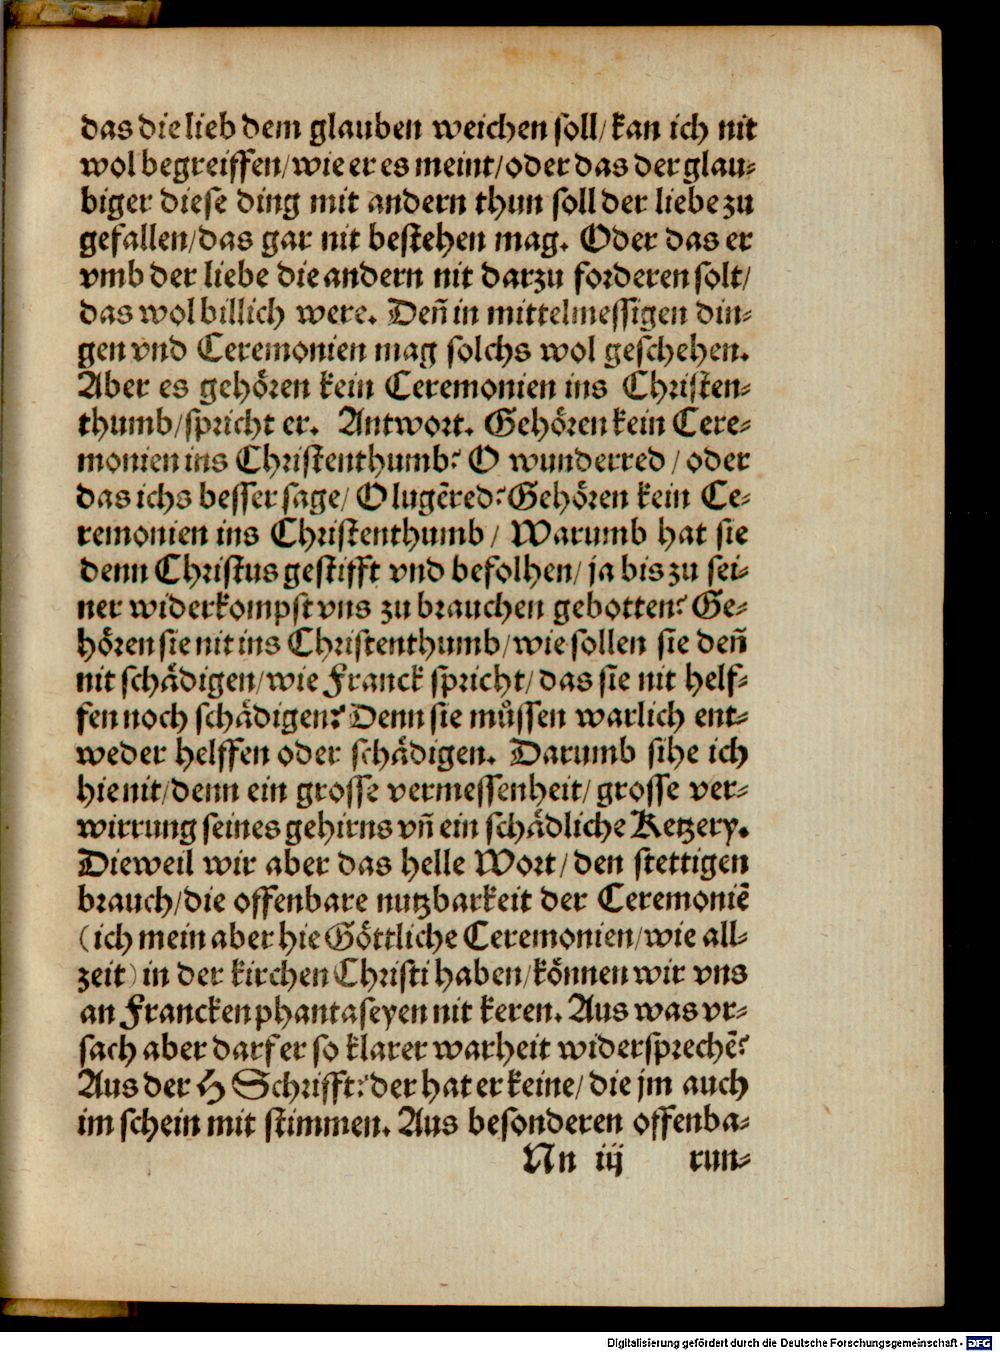 das die lieb dem glauben weichen soll/ kan ich nit
wol begreiffen/ wie er es meint/ oder das der glau⸗
biger diese ding mit andern thun soll der liebe zu
gefallen/ das gar nit bestehen mag. Oder das er
vmb der liebe die andern nit darzu forderen solt/
das wol billich were. Deñ in mittelmessigen din⸗
gen vnd Ceremonien mag solchs wol geschehen.
Aber es gehoͤren kein Ceremonien ins Christen⸗
thumb/ spricht er. Antwort. Gehoͤren kein Cere⸗
monien ins Christenthumb? O wunderred / oder
das ichs besser sage/ O lugẽred? Gehoͤren kein Ce⸗
remonien ins Christenthumb / Warumb hat sie
denn Christus gestifft vnd befolhen/ ja bis zu sei⸗
ner widerkompst vns zu brauchen gebotten? Ge⸗
hoͤren sie nit ins Christenthumb/ wie sollen sie deñ
nit schaͤdigen/ wie Franck spricht/ das sie nit helf⸗
fen noch schaͤdigen? Denn sie muͤssen warlich ent⸗
weder helffen oder schaͤdigen. Darumb sihe ich
hie nit/ denn ein grosse vermessenheit/ grosse ver⸗
wirrung seines gehirns vñ ein schaͤdliche Ketzery.
Dieweil wir aber das helle Wort/ den stettigen
brauch/ die offenbare nutzbarkeit der Ceremoniẽ
(ich mein aber hie Goͤttliche Ceremonien/ wie all⸗
zeit) in der kirchen Christi haben/ koͤnnen wir vns
an Francken phantaseyen nit keren. Aus was vr⸗
sach aber darf er so klarer warheit widersprechẽ?
Aus der H Schrifft? der hat er keine/ die jm auch
im schein mit stimmen. Aus besonderen offenba⸗
Nn iij run⸗
Digitalisierung gefördert durch die Deutsche Forschungsgemeinschaft - DFG